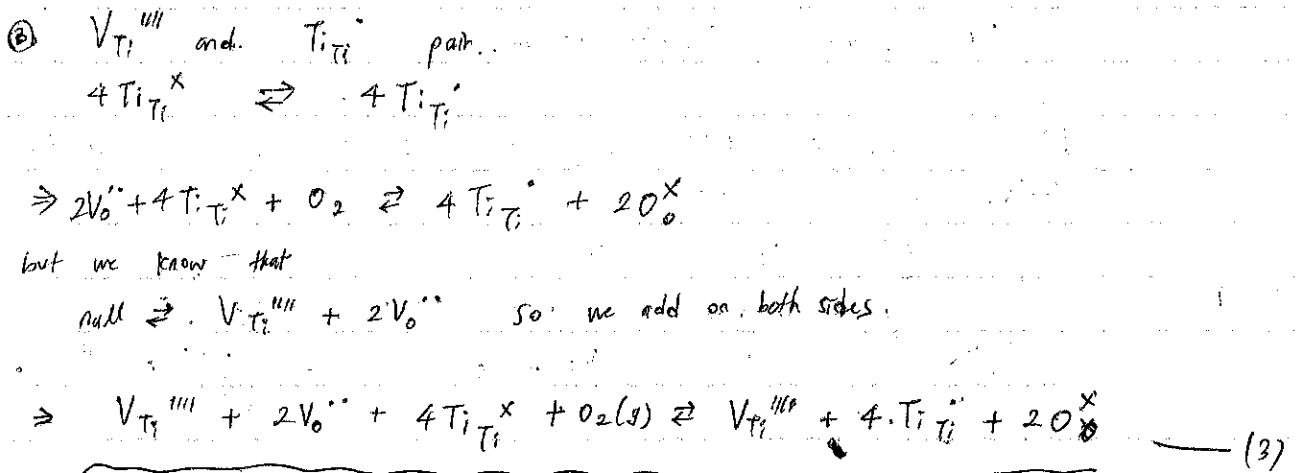 ③ V_Ti'''' and. Ti_Ti^• pair..
4 Ti_Ti^x ⇄ 4 Ti_Ti^•
⇒ 2V_o^•• + 4 Ti_Ti^x + O_2 ⇄ 4 Ti_Ti^• + 2O_o^x
but we know that
null ⇄ V_Ti'''' + 2V_o^•• so we add on both sides.
⇒ V_Ti'''' + 2V_o^•• + 4Ti_Ti^x + O_2(g) ⇄ V_Ti'''' + 4.Ti_Ti^• + 2O_o^x —— (3)